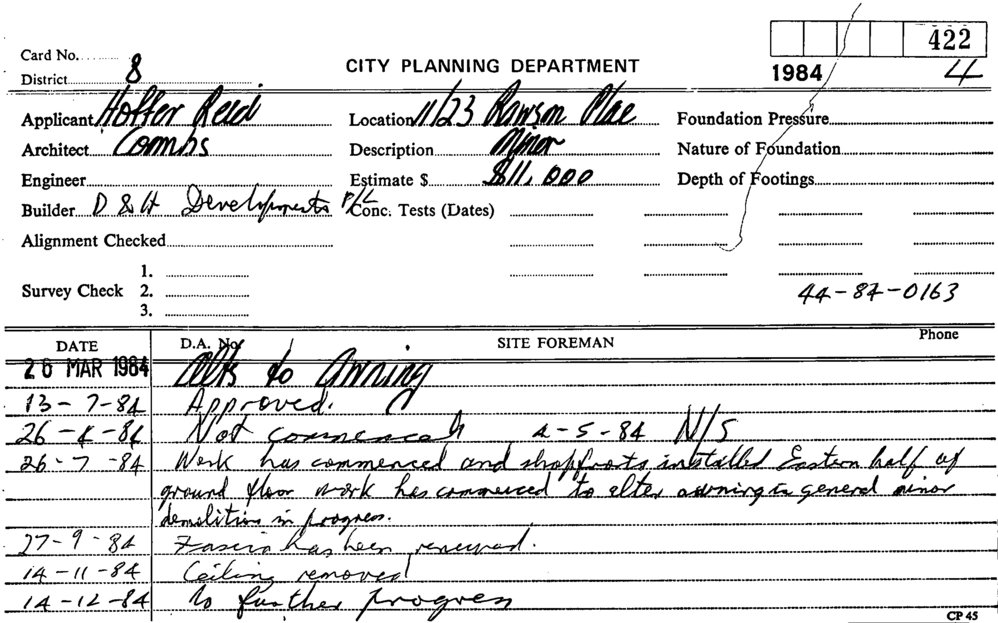 Card No.
422
District 8
CITY PLANNING DEPARTMENT
1984 4
Applicant Hoffer Reid Location 11/23 Rawson Plae Foundation Pressure
Architect Combs Description Minor Nature of Foundation
Engineer Estimate $ $11,000 Depth of Footings
Builder D & H Developments P/L Conc. Tests (Dates)
Alignment Checked
1.
Survey Check 2.
3.
44-84-0163
DATE D.A. No. SITE FOREMAN Phone
26 MAR 1984 Alts to Awning
13-7-84 Approved.
26-4-84 Not commenced 2-5-84 N/S
26-7-84 Work has commenced and shopfronts installed Eastern half of
ground floor work has commenced to alter awning in general minor
demolition in progress.
27-9-84 Fascia has been renewed.
14-11-84 Ceiling removed
14-12-84 No further progress
CP 45